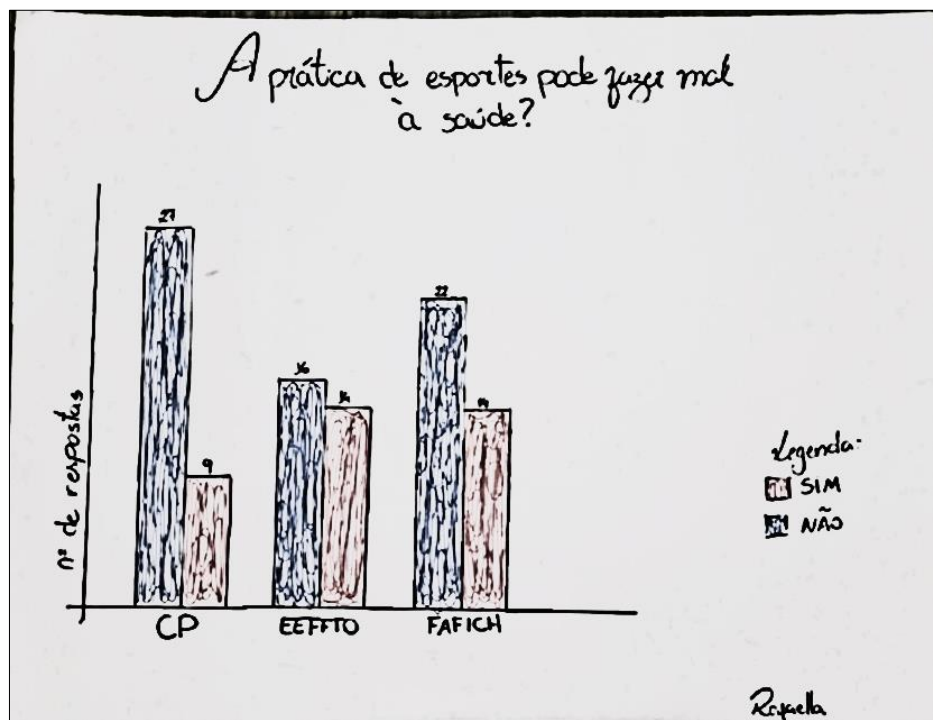 A prática de esportes pode fazer mal
à saúde?
nº de respostas
27
9
16
14
22
14
CP
EEFFTO
FAFICH
Legenda:
SIM
NÃO
Rafaella